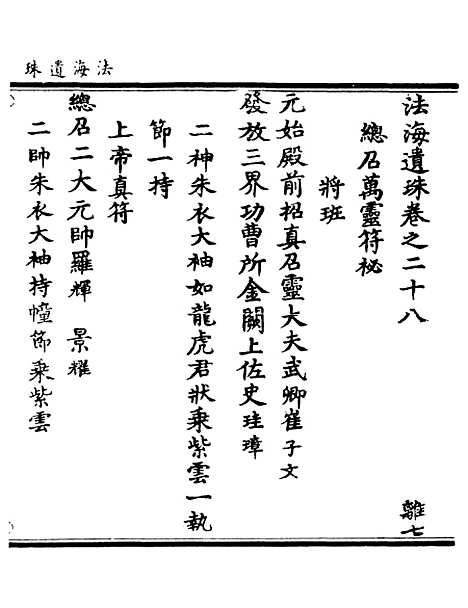 法海遺珠
法海遺珠卷之二十八　離七
總召萬靈符祕
將班
元始殿前招真召靈大夫武卿崔子文
發放三界功曹所金闕上佐史珪璋
二神朱衣大袖如龍虎君狀乗紫雲一執
節一持
上帝真符
總召二大元帥羅輝　景耀
二帥朱衣大袖持幢節乗紫雲